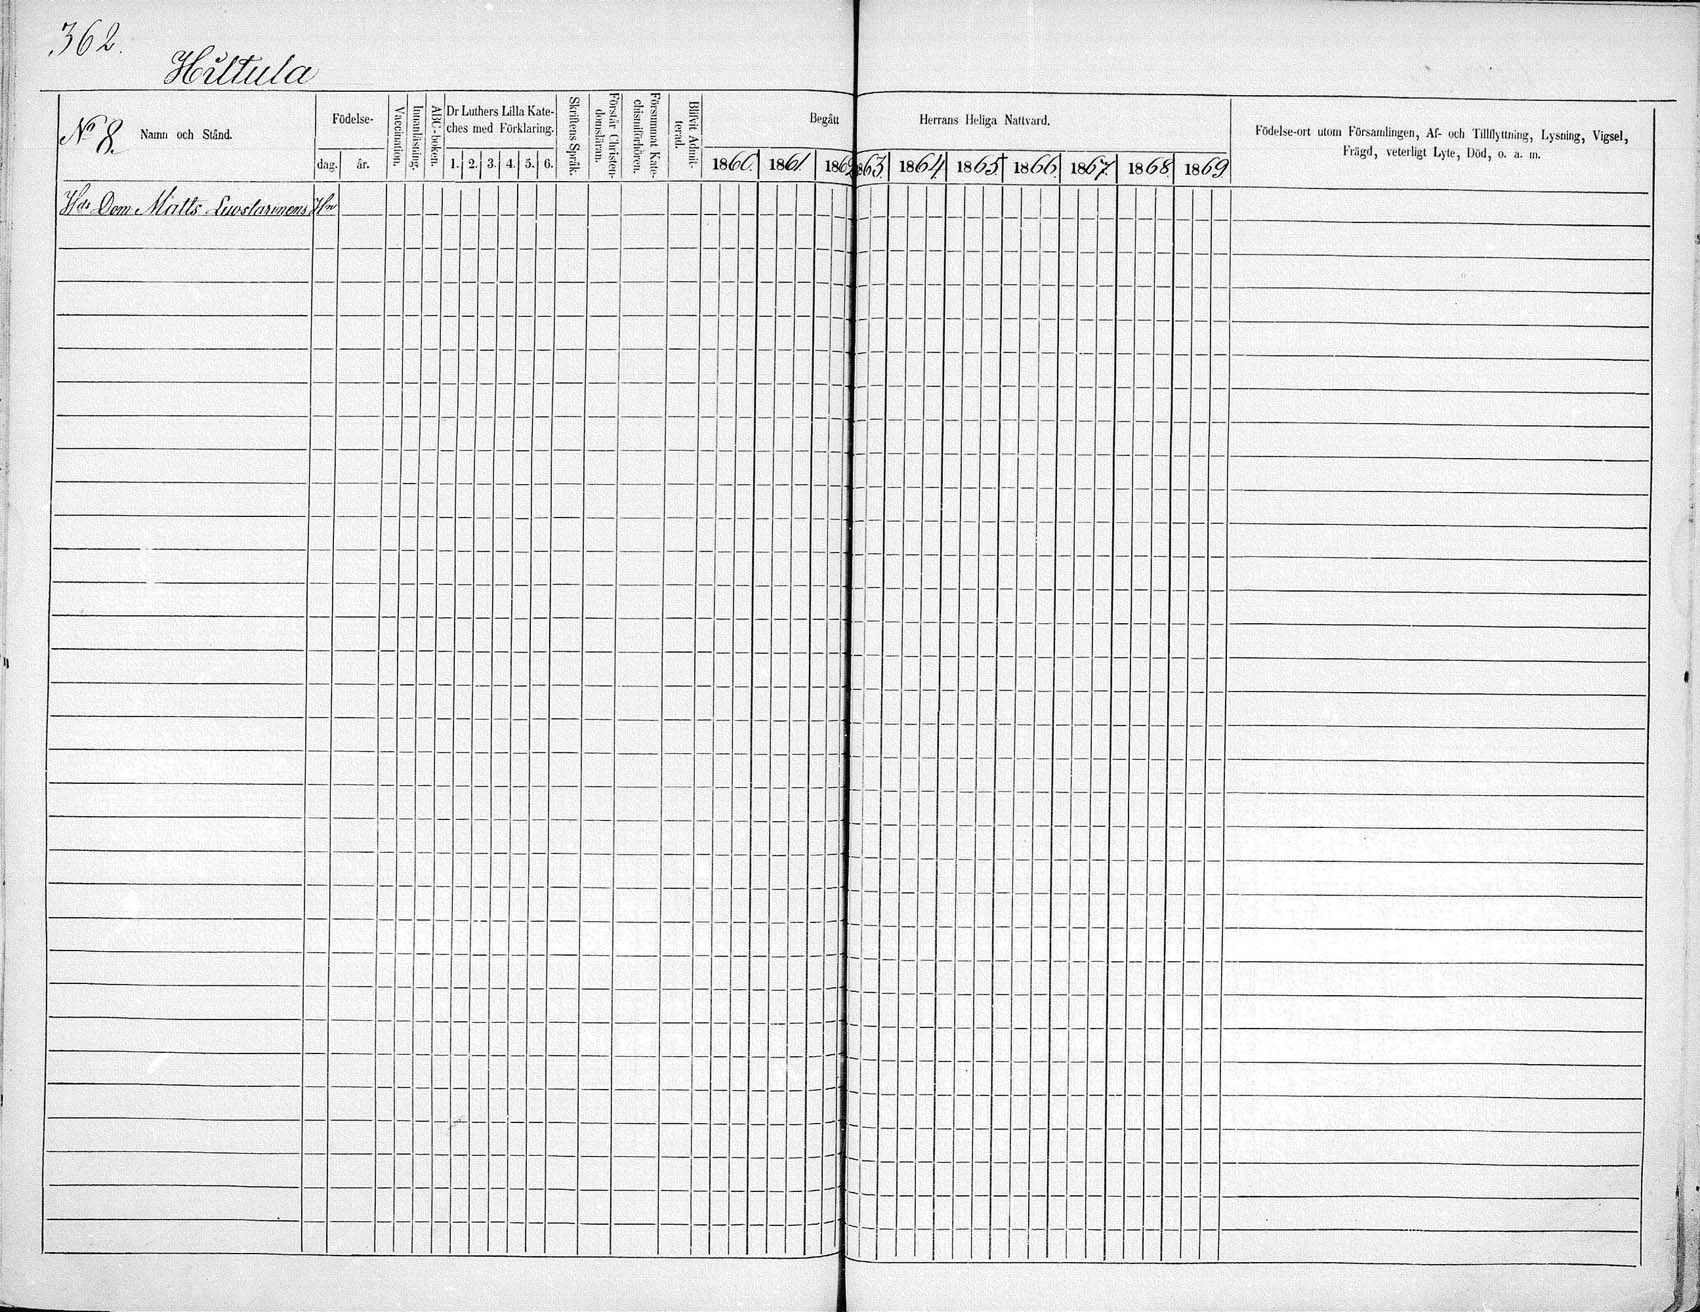 362.
Hiltula
No 8.
Namn och Stånd.
Födelse-
dag. år.
Vaccination.
Innanläsning.
ABC-boken.
Dr Luthers Lilla Kate-
ches med Förklaring.
1. 2. 3. 4. 5. 6.
Skriftens Språk.
Förstår Christen-
domsläran.
Försummat Kate-
chismiförhören.
Blifvit Admit-
terad.
Begått Herrans Heliga Nattvard.
1860. 1861. 1862 1863 1864 1865 1866 1867. 1868 1869
Födelse-ort utom Församlingen, Af- och Tillflyttning, Lysning, Vigsel,
Frägd, veterligt Lyte, Död, o. a. m.
Hds Dom Matts Luostarinens